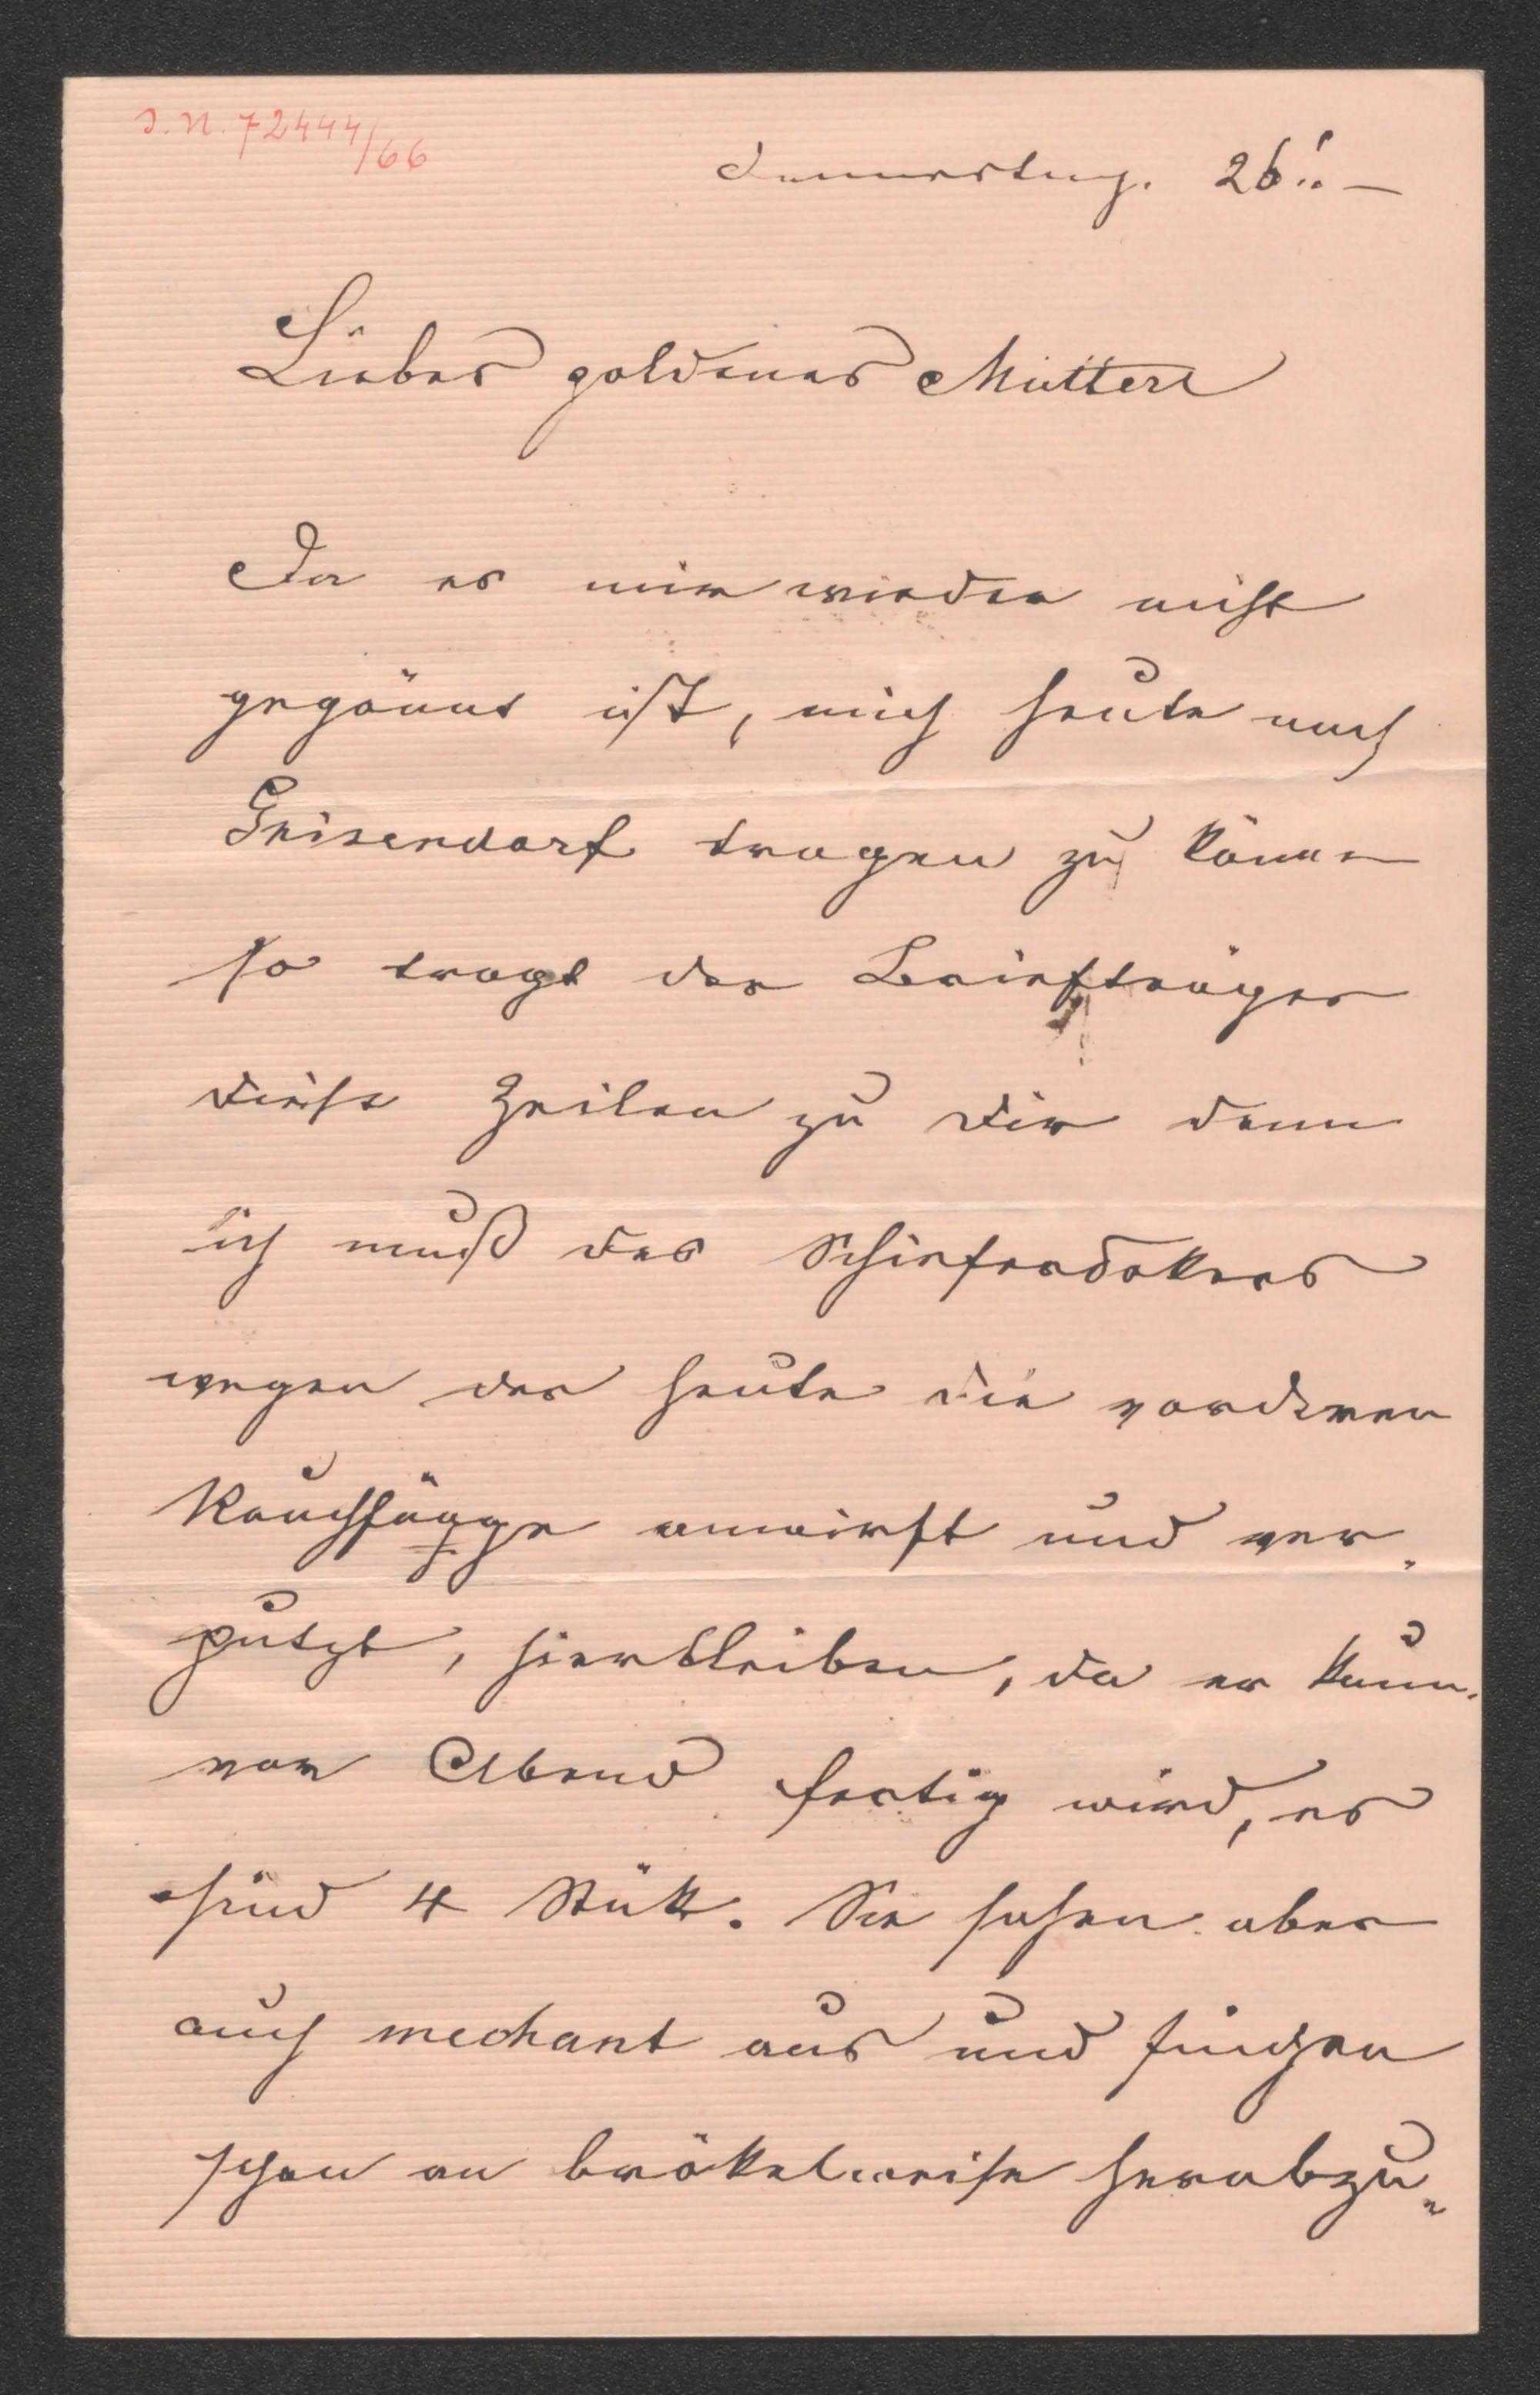 J.N. 72444/66
Donnerstag. 26.! –
Liebes goldenes Mutterl
Da es mir wieder nicht
gegönnt ist, mich heute nach
Geisendorf tragen zu können
so tragt der Briefträger
diese Zeilen zu dir denn
ich muß des Schieferdekers
wegen der heute die vorderen
Rauchfägge anwirft und ver„
putzt, hierbleiben, da er kaum
vor Abend fertig wird, es
sind 4 Stük. Sie sahen aber
auch mechant aus und fingen
schon an brökelweise herabzu„